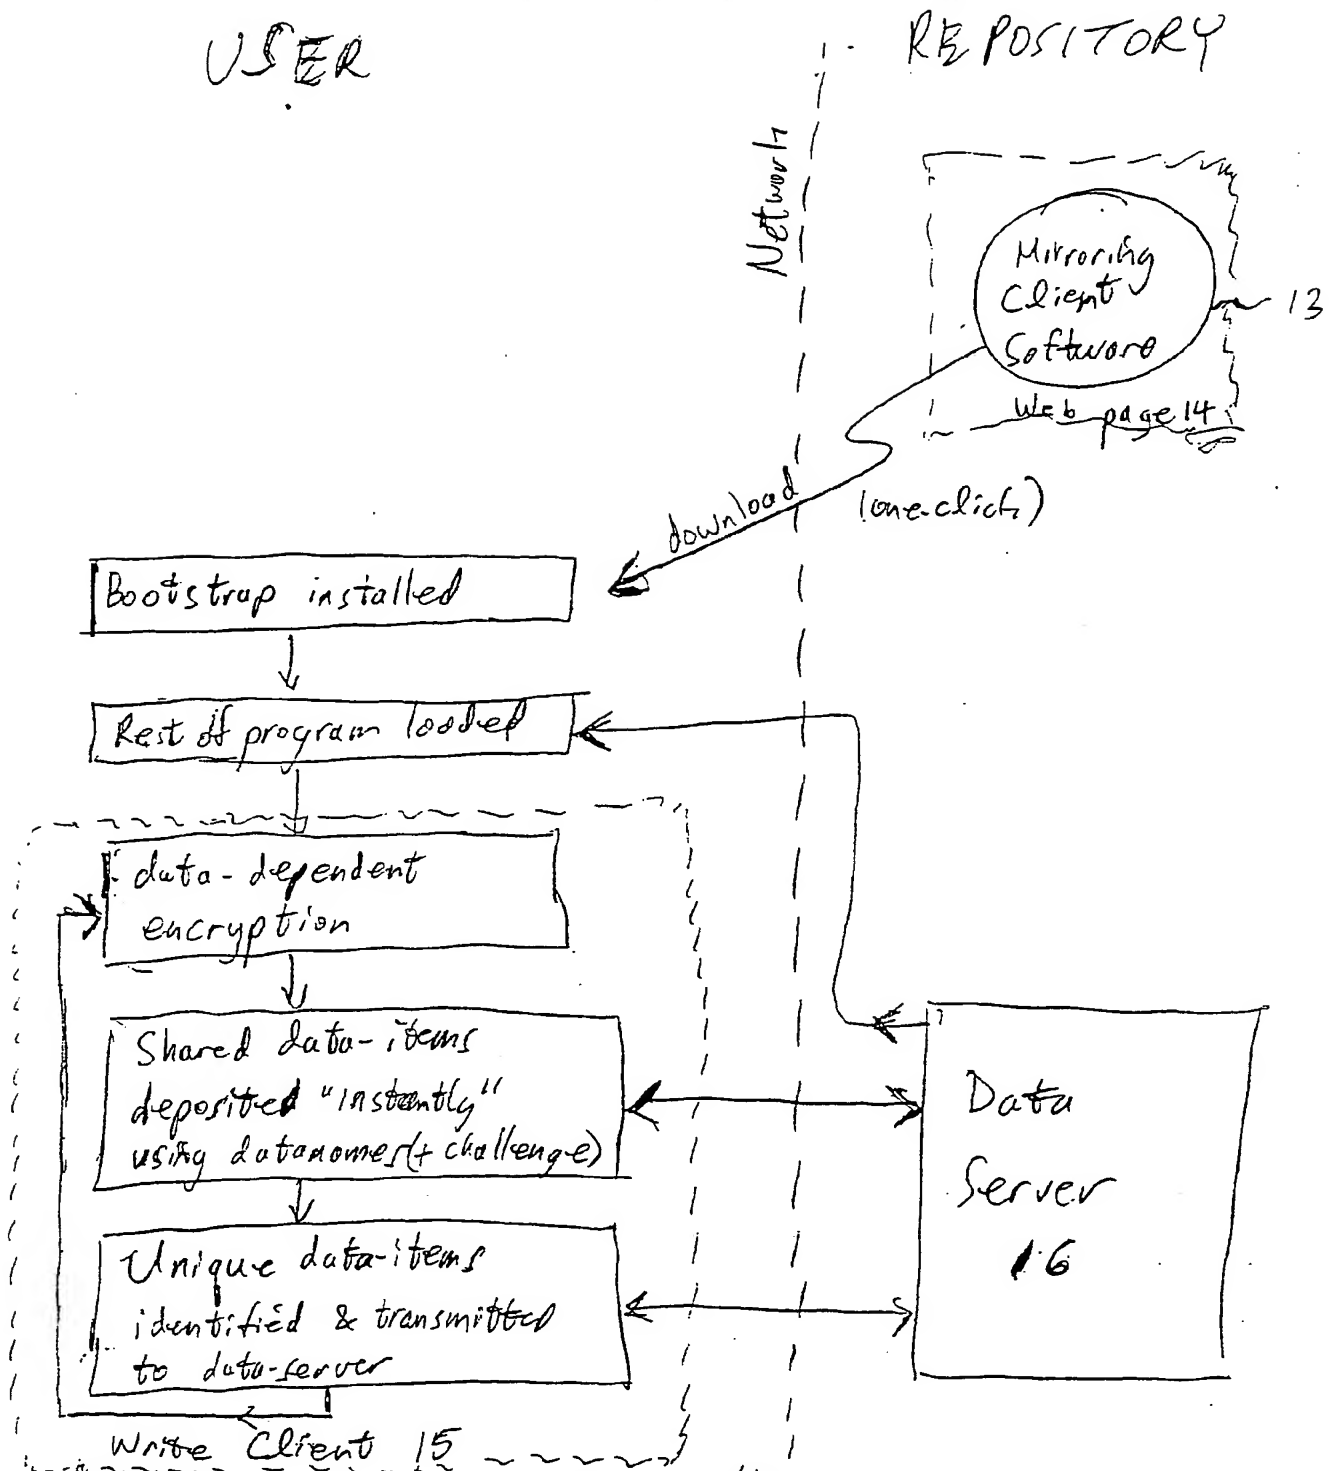 USER
REPOSITORY
Network
Mirroring
Client
Software
13
Web page 14
download
(one-click)
Bootstrap installed
Rest of program loaded
data-dependent
encryption
Shared data-items
deposited "instantly"
using datanames (+ challenge)
Unique data-items
identified & transmitted
to data-server
Write Client 15
Data
Server
16